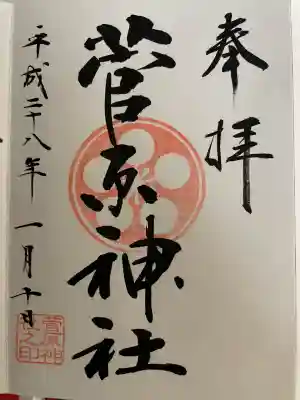 奉拝
菅原神社
平成二十八年一月十日